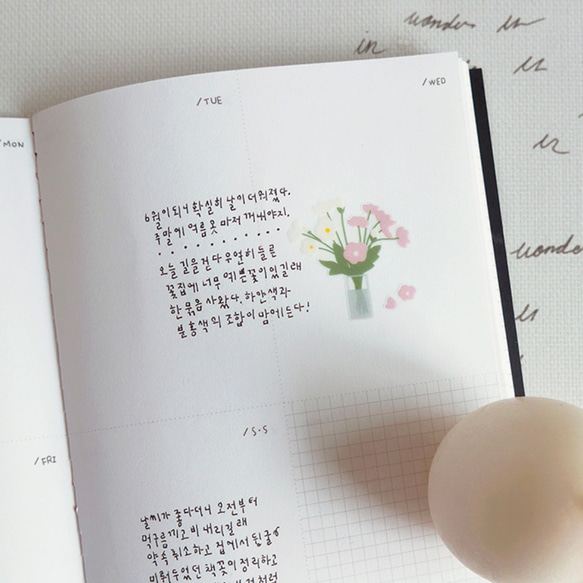 wonder in
in
in
in
wonder
in
/MON
/TUE
/WED
6월이 되니 확실히 날이 더워졌다.
주말에 여름 옷 마저 꺼내야지.
오늘 길을 걷다 우연히 들른
꽃집에 너무 예쁜 꽃이 있길래
한 묶음 사왔다. 하얀색과
분홍색의 조합이 맘에 든다!
/FRI
/S·S
날씨가 좋다더니 오전부터
먹구름 끼고 비 내리길래
약속 취소하고 집에서 뒹굴
미뤄두었던 책꽂이 정리하고